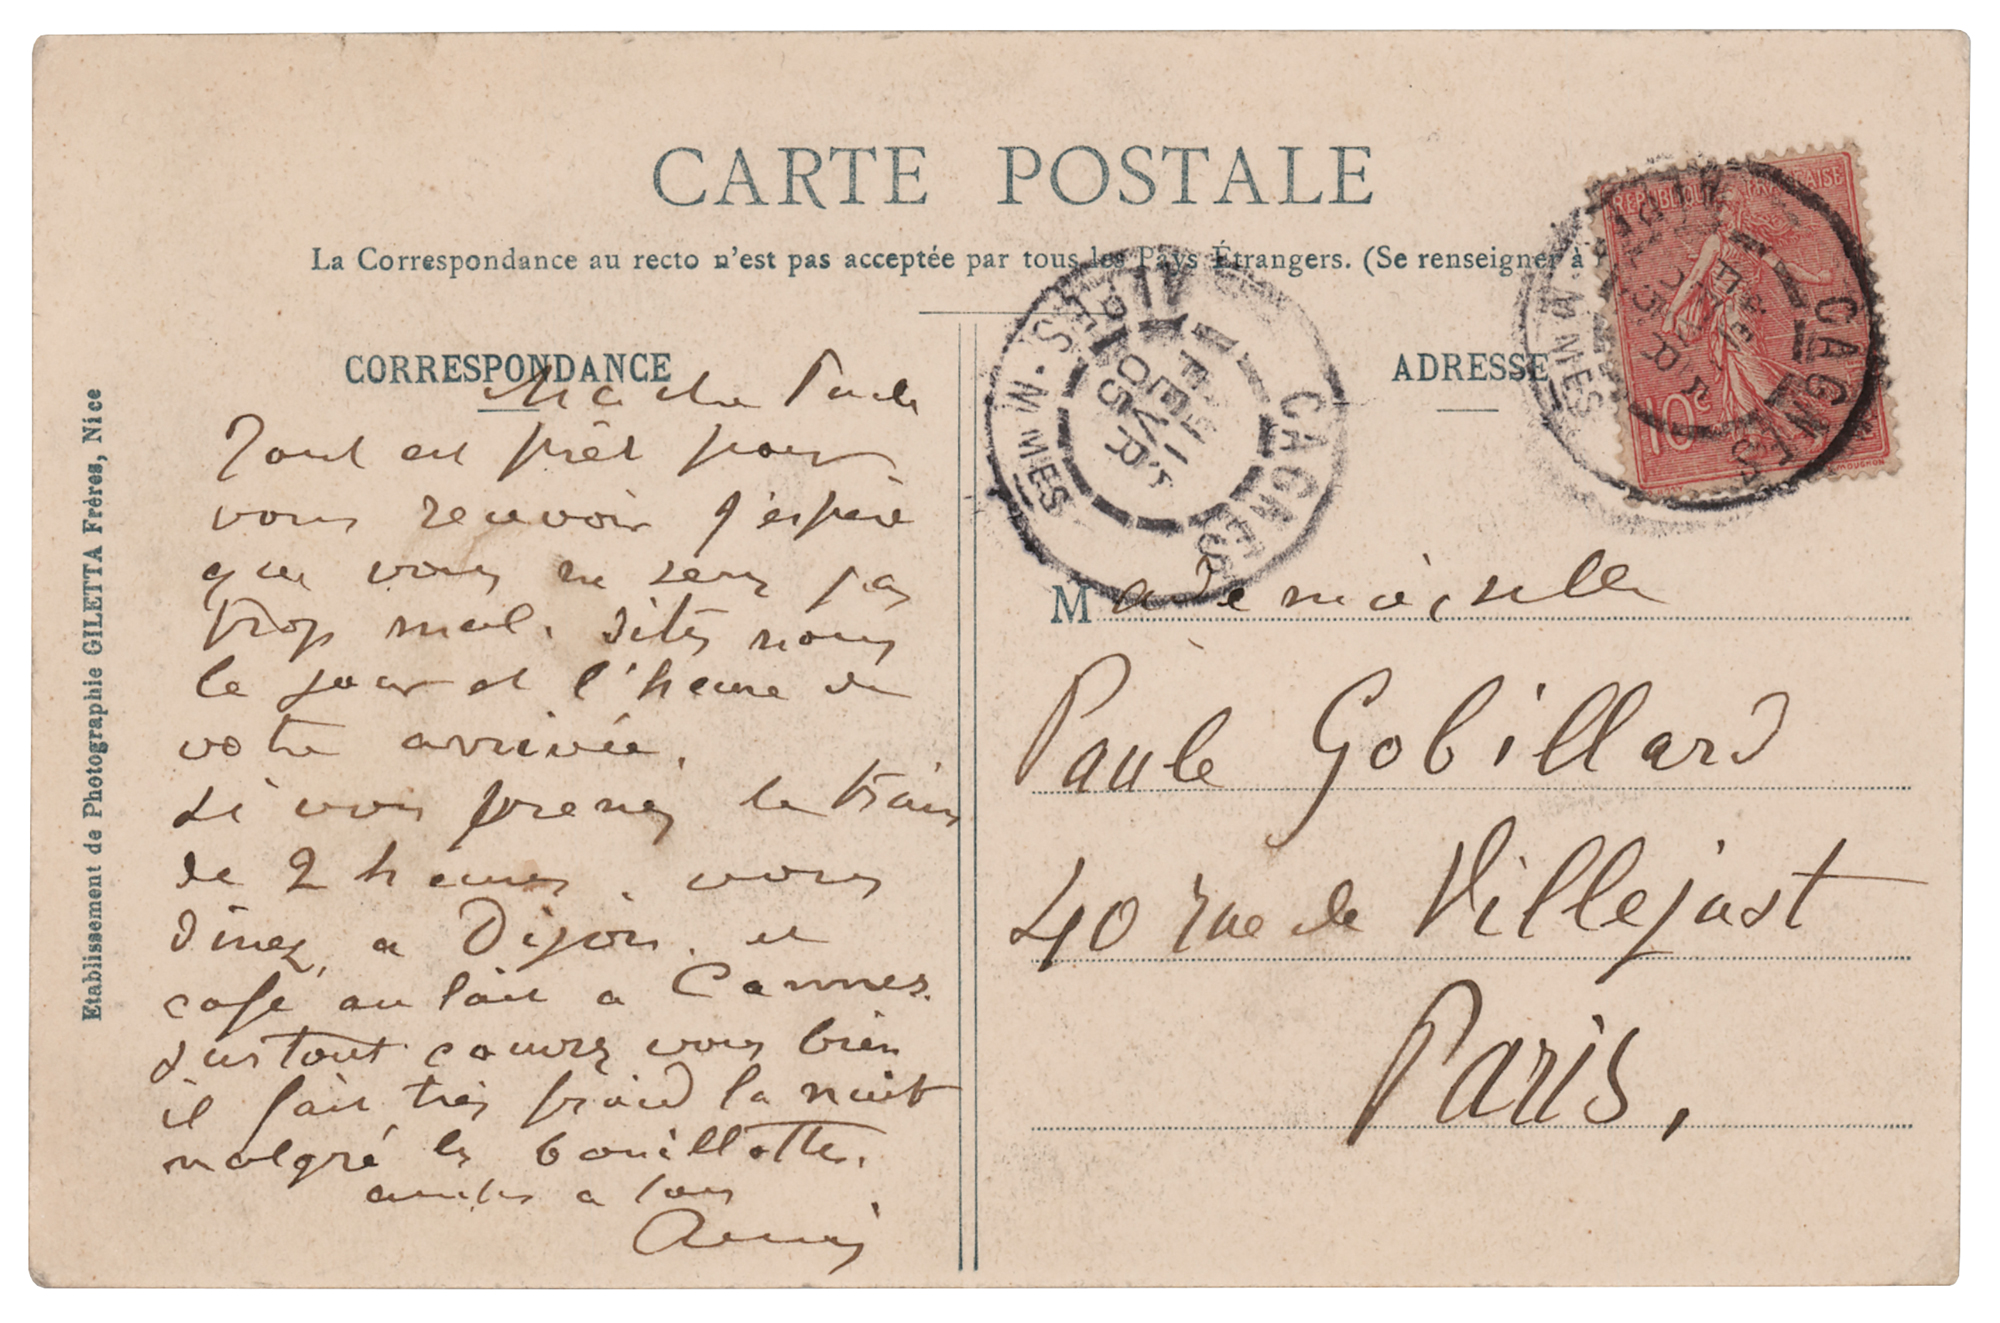 CARTE POSTALE
La Correspondance au recto n'est pas acceptée par tous les Pays Étrangers. (Se renseigner à
CORRESPONDANCE
ADRESSE
Etablissement de Photographie GILETTA Frères, Nice
Ma Paule
Tout est prêt pour
vous revoir j'espère
que vous ne serez pas
trop mal. dites nous
le jour et l'heure de
votre arrivée.
si vous prenez le train
de 2 heures. vous
dinez, a Dijon. et
café au lait a Cannes.
surtout couvrez vous bien
il fait très froid la nuit
malgré les bouillottes.
a tous
Mademoiselle
Paule Gobillard
40 rue de Villejust
Paris,
REPUBLIQUE FRANÇAISE
10c
MOUCHON
CAGNES
CAGNES